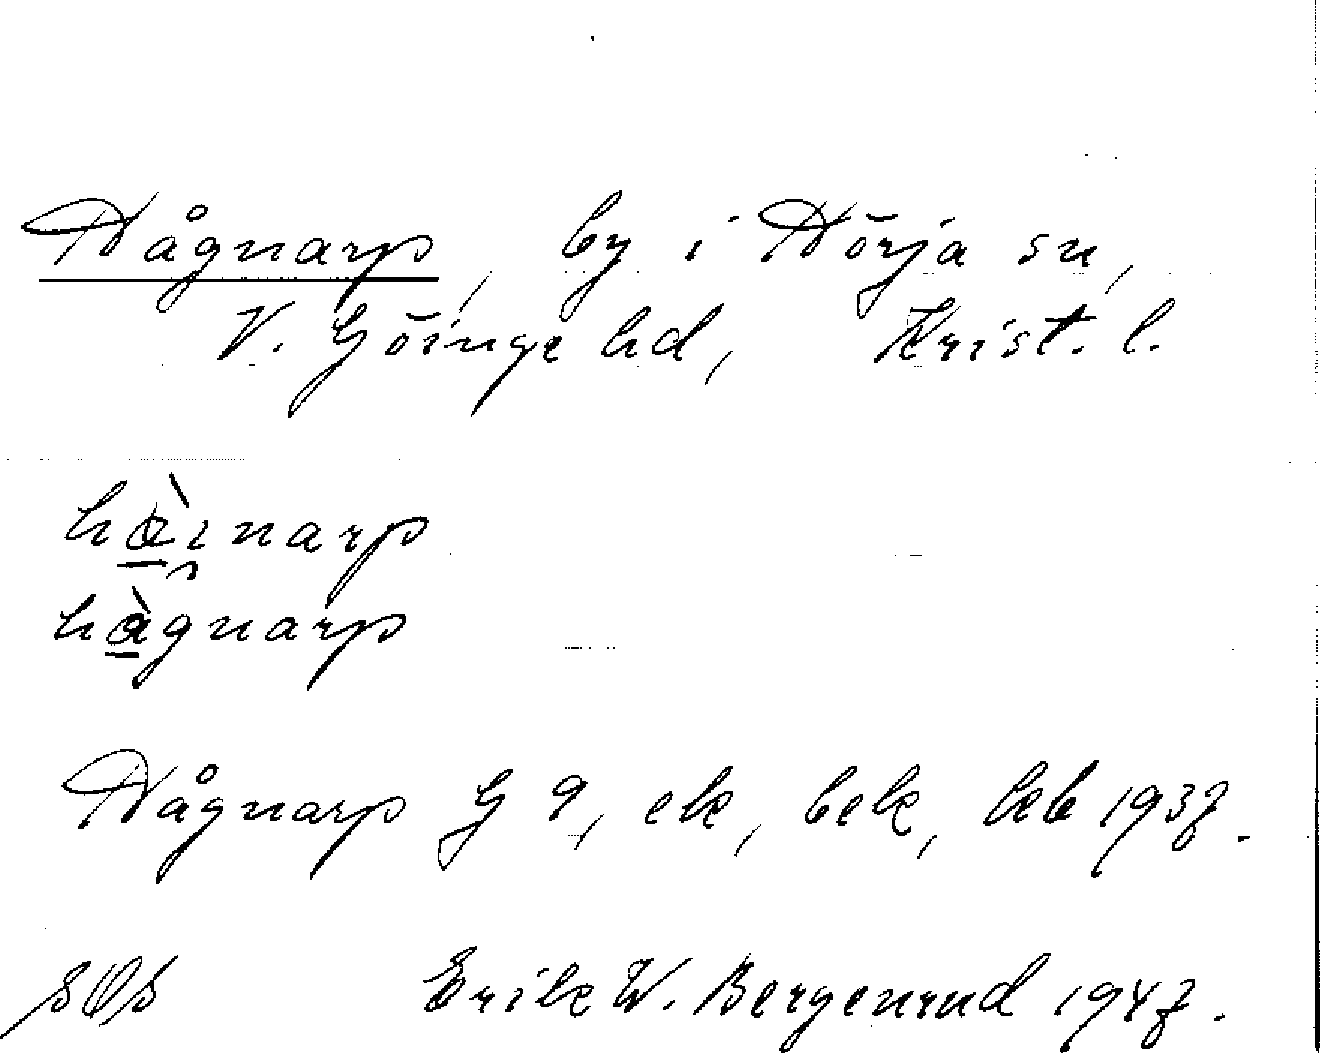 Hågnarp, by i Hörja sn,
V. Göinge hd, Krist. l.
hàinarp
hàgnarp
Hågnarp G 9, ek, bek, hkb 1937.
SOS Erik W. Bergenrud 1947.